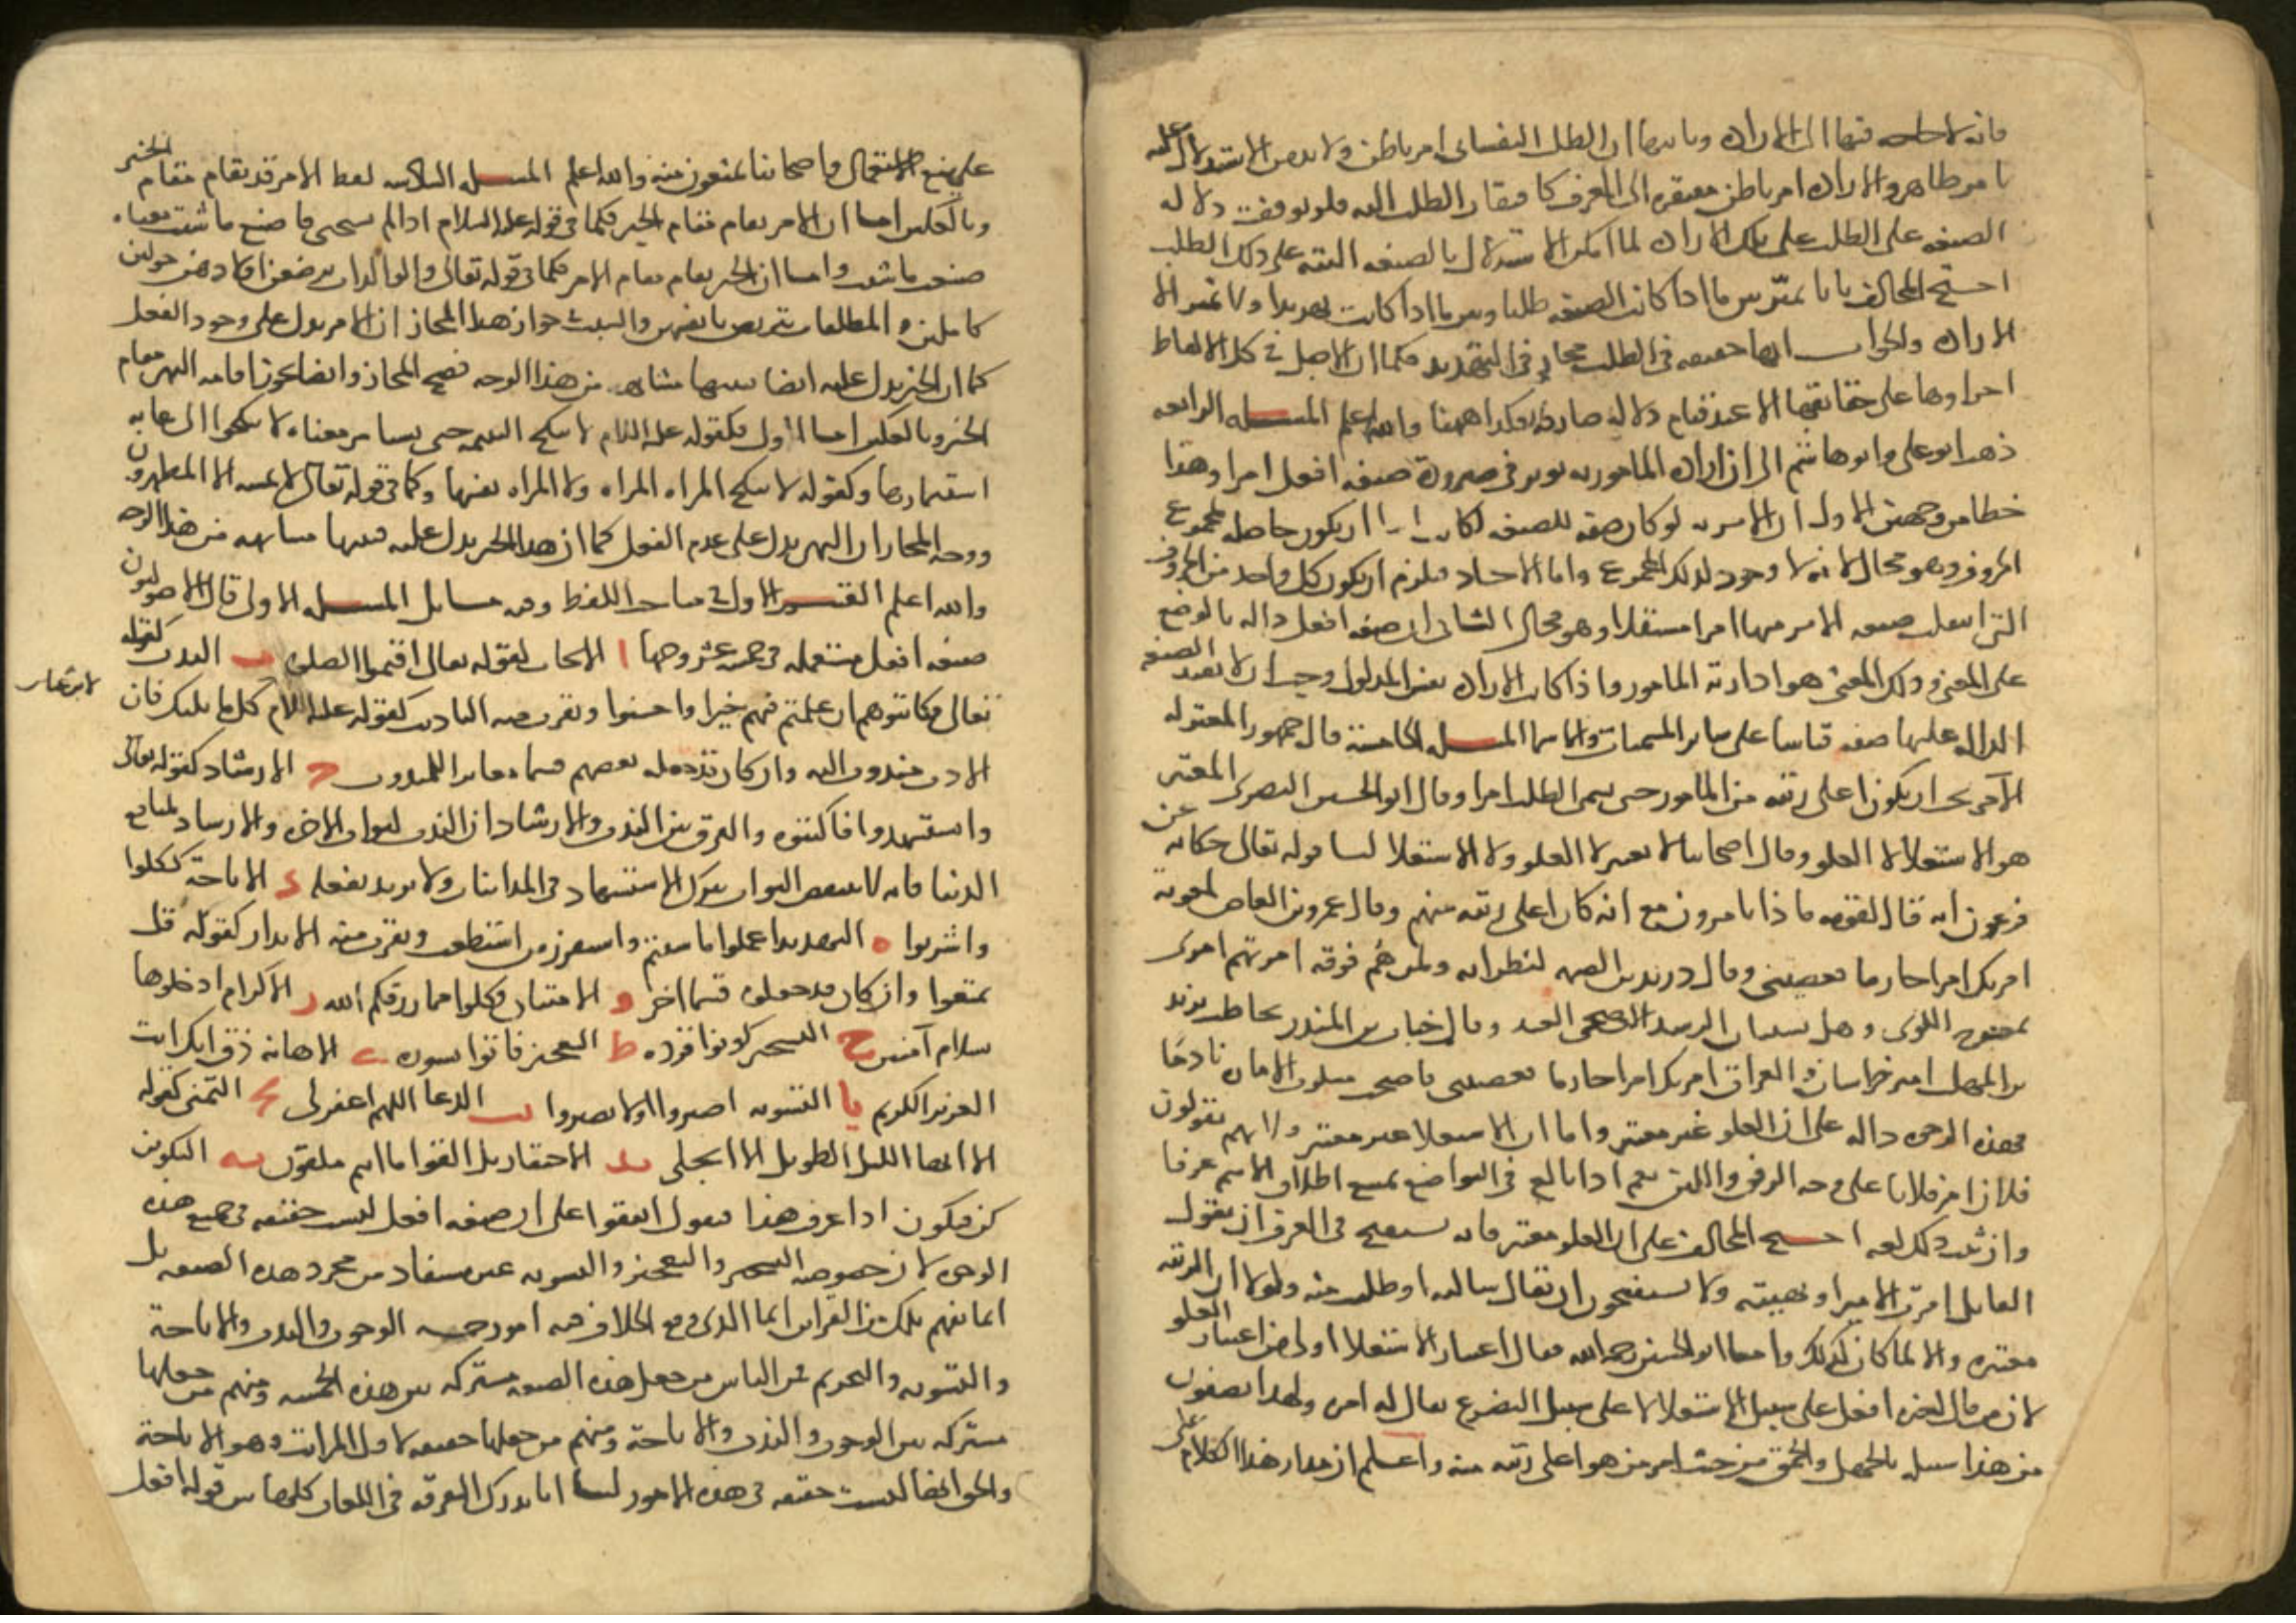 فانه لا حاجة فيها الى الارادة وثانيها ان الطلب النفساني امر باطن ولا بد من الاستدلال عليه
بامر ظاهر والارادة امر باطن مفتقرة الى المعرف كافتقار الطلب اليه فلو توقفت دلالة
الصيغة على الطلب على تلك الارادة لما امكن الاستدلال بالصيغة البتة على ذلك الطلب
احتج المخالف بانا نميز بين ما اذا كانت الصيغة طلبا وبين ما اذا كانت تهديدا ولا مميز الا
الارادة والجواب انها حقيقة في الطلب مجاز في التهديد فكما ان الاصل في كل الالفاظ
اجراوها على حقائقها الا عند قيام دلالة صارفة فكذا ههنا والله اعلم المسئلة الرابعة
ذهب ابو علي وابو هاشم الى ان ارادة المامور به توثر في صيرورة صيغة افعل امرا وهذا
خطا من وجهين الاول ان الامرية لو كان صفة للصيغة لكان اما ان يكون حاصلة لمجموع
الحروف وهو محال لانه لا وجود لذلك المجموع واما الاحاد فيلزم ان يكون كل واحد من الحروف
التي ائتلفت صيغة الامر منها امرا مستقلا وهو محال الثاني ان صيغة افعل دالة بالوضع
على المعنى وذلك المعنى هو ارادة المامور واذا كانت الارادة نفس المدلول وجب ان لا تفيد الصيغة
الدالة عليها صفة قياسا على سائر المسميات والاسما المسئلة الخامسة قال جمهور المعتزلة
الآمر يجب ان يكون اعلى رتبة من المامور حتى يسمى الطلب امرا وقال ابو الحسين البصري المعتبر
هو الاستعلا لا العلو وقال اصحابنا لا يعتبر لا العلو ولا الاستعلا لنا قوله تعالى حكاية عن
فرعون انه قال لقومه ماذا تامرون مع انه كان اعلى رتبة منهم وقال عمرو بن العاص لمعوية
امرتك امرا جازما فعصيتني وقال دريد بن الصمة لنظرائه ولمن هم فوقه امرتهم امري
بمنعرج اللوى وهل يستبان الرشد الا ضحى الغد وقال حباب بن المنذر يخاطب يزيد
بن المهلب امير خراسان والعراق امرتك امرا جازما فعصيتني فاصبحت مسلوب الامارة نادما
فهذه الوجوه دالة على ان العلو غير معتبر واما ان الاستعلا غير معتبر ولانهم يقولون
فلان امر فلانا على وجه الرفق واللين نعم اذا بالغ في التواضع يمنع اطلاق الاسم عرفا
وان ثبت ذلك لغة احتج المخالف على ان العلو معتبر فانه يستقبح في العرف ان يقول
القايل امرت الامير او نهيته ولا يستقبحون ان يقال سالته او طلبت منه ولولا ان الرتبة
معتبرة والا لما كان كذلك واما ابو الحسين رحمه الله فقال اعتبار الاستعلا اولى من اعتبار العلو
لان من قال لغيره افعل على سبيل الاستعلا لا على سبيل التضرع يقال له امره ولهذا يصفون
من هذا سبيله بالجهل والحمق من حيث امر من هو اعلى رتبة منه واعلم ان مدار هذا الكلام على
على صنع الاستعمال واصحابنا يمنعون منه والله اعلم المسئلة السادسة لفظ الامر قد يقام مقام الخبر
وبالعكس اما ان الامر يقام مقام الخبر فكما في قوله عليه السلام اذا لم تستحي فاصنع ما شئت معناه
صنعت ما شئت واما ان الخبر يقام مقام الامر فكما في قوله تعالى والوالدات يرضعن اولادهن حولين
كاملين و المطلقات يتربصن بانفسهن والسبب في جواز هذا المجاز ان الامر يدل على وجود الفعل
كما ان الخبر يدل عليه ايضا فبينهما مشابهة من هذا الوجه فصح المجاز وايضا يجوز اقامة النهي مقام
الخبر وبالعكس اما الاول فكقوله عليه السلام لا تنكح اليتيمة حتى تستامر معناه لا تنكحوا الى غاية
استيمارها وكقوله لا تنكح المراة المراة ولا المراة نفسها وكما في قوله تعالى لا يمسه الا المطهرون
ووجه المجاز ان النهي يدل على عدم الفعل كما ان هذا الخبر يدل عليه فبينهما مشابهة من هذا الوجه
والله اعلم القسم الاول في مباحث اللفظ وفيه مسائل المسئلة الاولى قال الاصوليون
صيغة افعل مستعملة في خمسة عشر وجها ا الايجاب لقوله تعالى اقيموا الصلوة ب الندب كقوله
تعالى فكاتبوهم ان علمتم فيهم خيرا واحسنوا ويقرب منه التاديب كقوله عليه السلام كل مما يليك فان
لابن عباس
الادب مندوب اليه وان كان قد جعله بعضهم قسما مغايرا للمندوب ج الارشاد كقوله تعالى
واستشهدوا فاكتبوه والفرق بين الندب والارشاد ان الندب لثواب الاخرة والارشاد لمنافع
الدنيا فانه لا ينقص الثواب بترك الاستشهاد في المداينات ولا يزيد بفعله د الاباحة ككلوا
واشربوا ه التهديد اعملوا ما شئتم واستفزز من استطعت ويقرب منه الانذار كقوله قل
تمتعوا وان كان قد جعلوه قسما اخر و الامتنان وكلوا مما رزقكم الله ز الاكرام ادخلوها
بسلام آمنين ح التسخير كونوا قردة ط التعجيز فاتوا بسورة ي الاهانة ذق انك انت
العزيز الكريم يا التسوية اصبروا او لا تصبروا يب الدعا اللهم اغفر لي يج التمني كقوله
الا ايها الليل الطويل الا انجلي يد الاحتقار بل القوا ما انتم ملقون يه التكوين
كن فيكون اذا عرف هذا فنقول اتفقوا على ان صيغة افعل ليست حقيقة في جميع هذه
الوجوه لان خصوصية التسخير والتعجيز والتسوية غير مستفاد من مجرد هذه الصيغة بل
انما تفهم تلك من القراين انما الذي وقع الخلاف فيه امور خمسة الوجوب والندب والاباحة
والتنزيه والتحريم فمن الناس من جعل هذه الصيغة مشتركة بين هذه الخمسة ومنهم من جعلها
مشتركة بين الوجوب والندب والاباحة ومنهم من جعلها حقيقة لاقل المراتب وهو الاباحة
والحق انها ليست حقيقة في هذه الامور لنا انا ندرك التفرقة في اللغات كلها بين قوله افعل